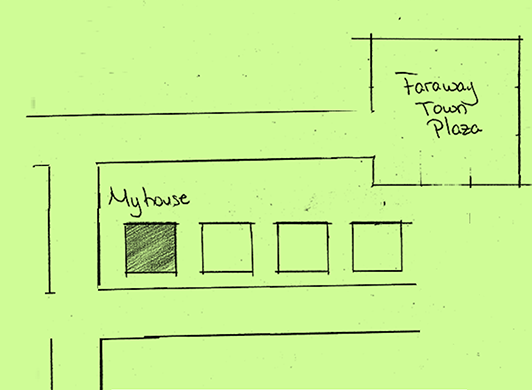 Faraway
Town
Plaza
My house